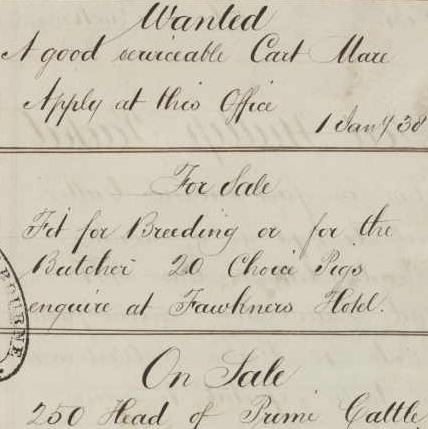 Wanted
A good serviceable Cart Mare
Apply at this Office
1 Jany 38
For Sale
Fit for Breeding or for the
Butcher 20 Choice Pigs
enquire at Fawkners Hotel.
On Sale
250 Head of Prime Cattle